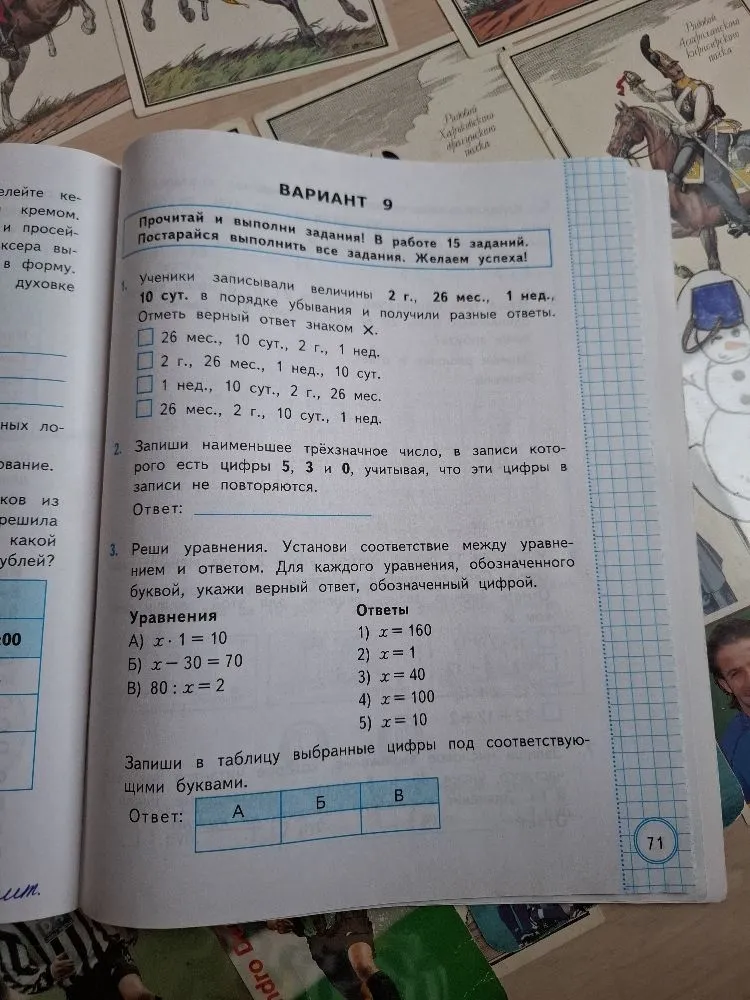 Рядовой
Харьковского
драгунского
полка
Рядовой
Астраханского
кирасирского
полка
елейте ке-
кремом.
и просей-
ксера вы-
в форму.
духовке
ных ло-
ование.
ков из
решила
какой
ублей?
:00
ВАРИАНТ 9
Прочитай и выполни задания! В работе 15 заданий.
Постарайся выполнить все задания. Желаем успеха!
1. Ученики записывали величины 2 г., 26 мес., 1 нед.,
10 сут. в порядке убывания и получили разные ответы.
Отметь верный ответ знаком ×.
26 мес., 10 сут., 2 г., 1 нед.
2 г., 26 мес., 1 нед., 10 сут.
1 нед., 10 сут., 2 г., 26 мес.
26 мес., 2 г., 10 сут., 1 нед.
2. Запиши наименьшее трёхзначное число, в записи кото-
рого есть цифры 5, 3 и 0, учитывая, что эти цифры в
записи не повторяются.
Ответ:
3. Реши уравнения. Установи соответствие между уравне-
нием и ответом. Для каждого уравнения, обозначенного
буквой, укажи верный ответ, обозначенный цифрой.
Уравнения
А) x · 1 = 10
Б) x − 30 = 70
В) 80 : x = 2
Ответы
1) x = 160
2) x = 1
3) x = 40
4) x = 100
5) x = 10
Запиши в таблицу выбранные цифры под соответствую-
щими буквами.
Ответ: А Б В
71